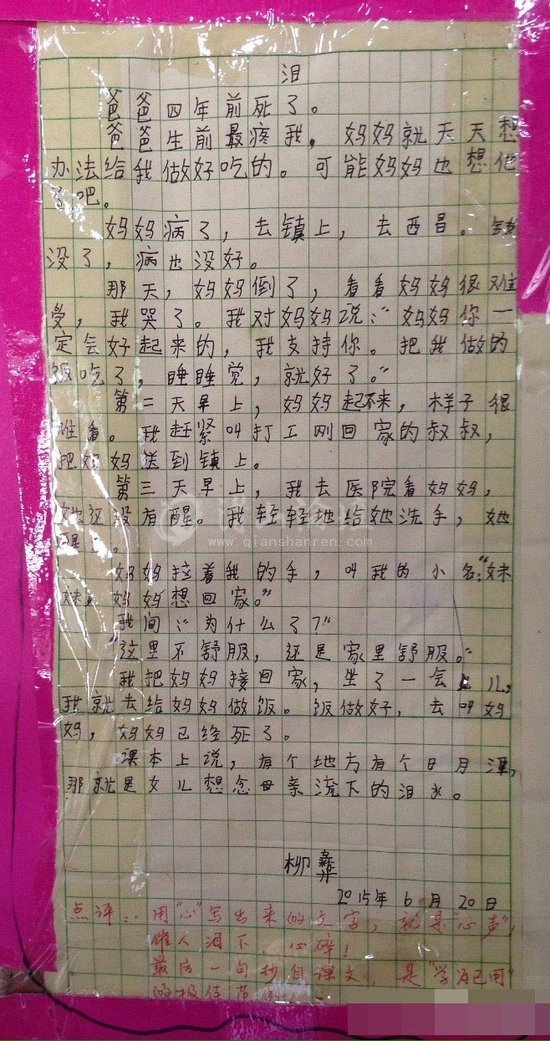 泪
爸爸四年前死了。
爸爸生前最疼我，妈妈就天天想
办法给我做好吃的。可能妈妈也想他
了吧。
妈妈病了，去镇上，去西昌。钱
没了，病也没好。
那天，妈妈倒了，看看妈妈很难
受，我哭了。我对妈妈说：“妈妈你一
定会好起来的，我支持你。把我做的
饭吃了，睡睡觉，就好了。”
第二天早上，妈妈起不来，样子很
难看。我赶紧叫打工刚回家的叔叔，
把妈妈送到镇上。
第三天早上，我去医院看妈妈，
她还没有醒。我轻轻地给她洗手，她
醒了。
www.qianshanren.com
妈妈拉着我的手，叫我的小名：“妹
妹，妈妈想回家。”
我问：“为什么了？”
“这里不舒服，还是家里舒服。”
我把妈妈接回家，坐了一会儿，
我就去给妈妈做饭。饭做好，去叫妈
妈，妈妈已经死了。
课本上说，有个地方有个日月潭，
那就是女儿想念母亲流下的泪水。
柳彝
2015年6月20日
点评：用“心”写出来的文字，就是“心声”，
催人泪下，心碎！
最后一句抄自课文，是“学为己用”
的极佳范例